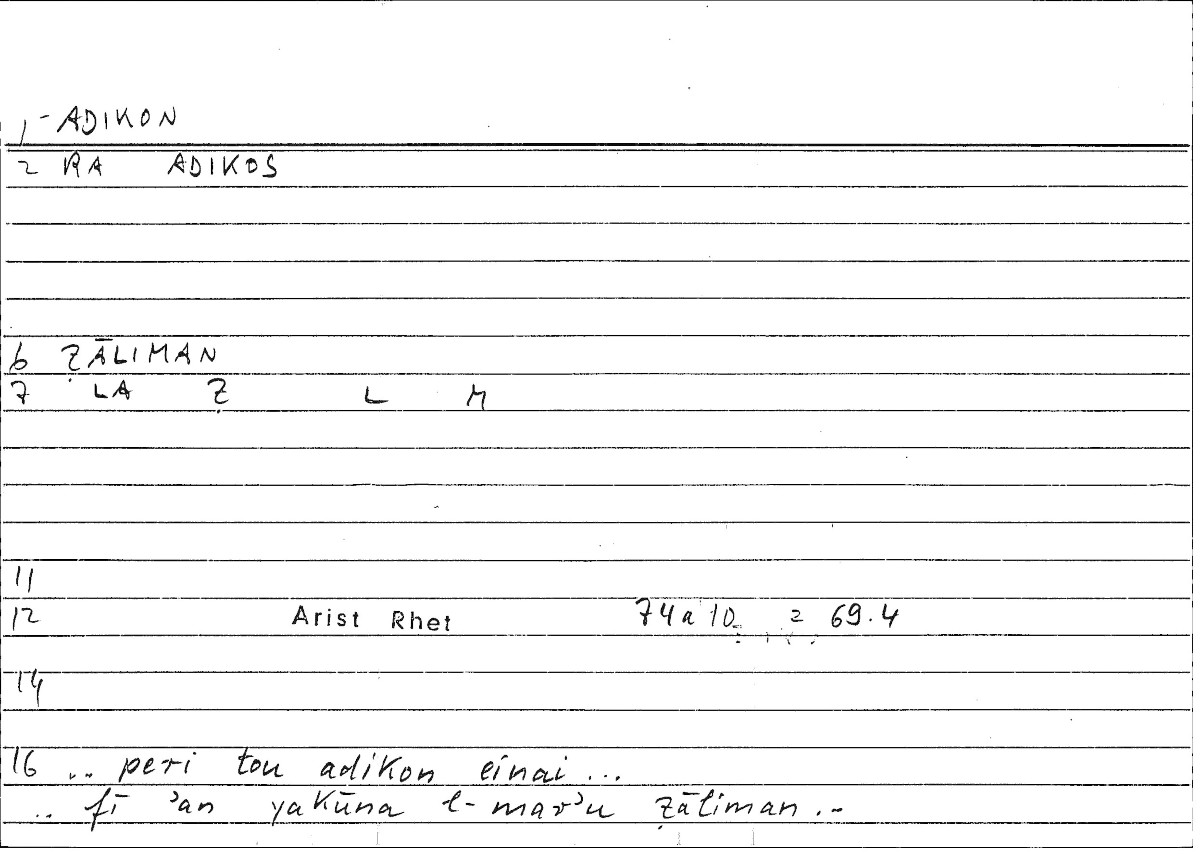 1- ADIKON
2 RA ADIKOS
6 ẒĀLIMAN
7 LA Ẓ L M
11
12 Arist Rhet 74a10 = 69.4
14
16 .. peri tou adikon einai ...
.. fī ʾan yakūna l-marʾu ẓāliman ..